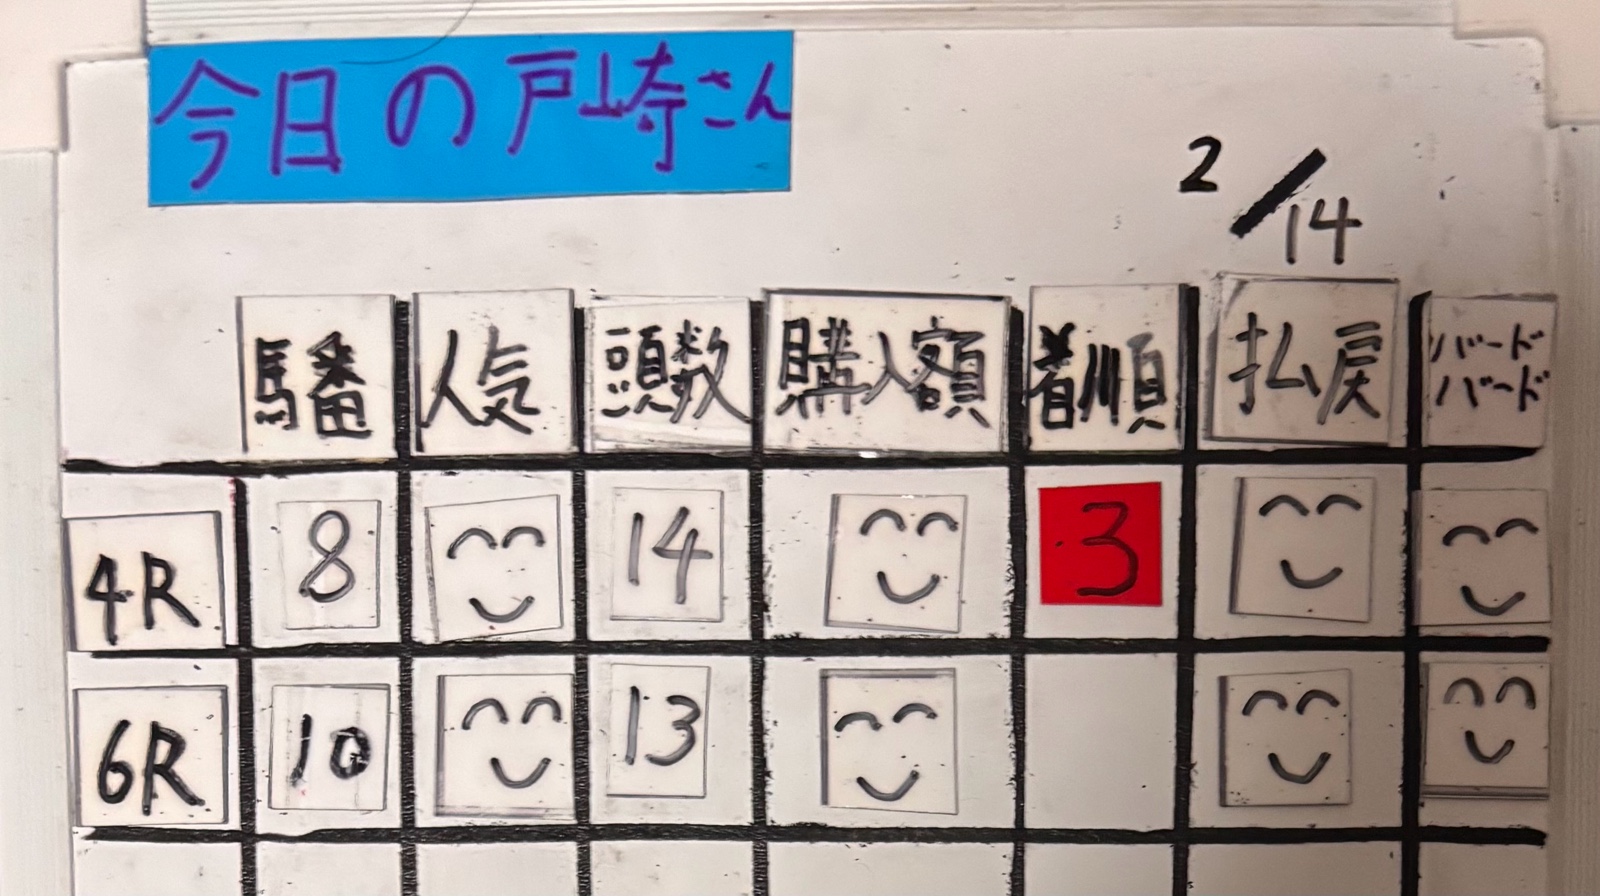 今日の戸崎さん
2/14
馬番 人気 頭数 購入額 着順 払戻 バードバード
4R 8 14 3
6R 10 13